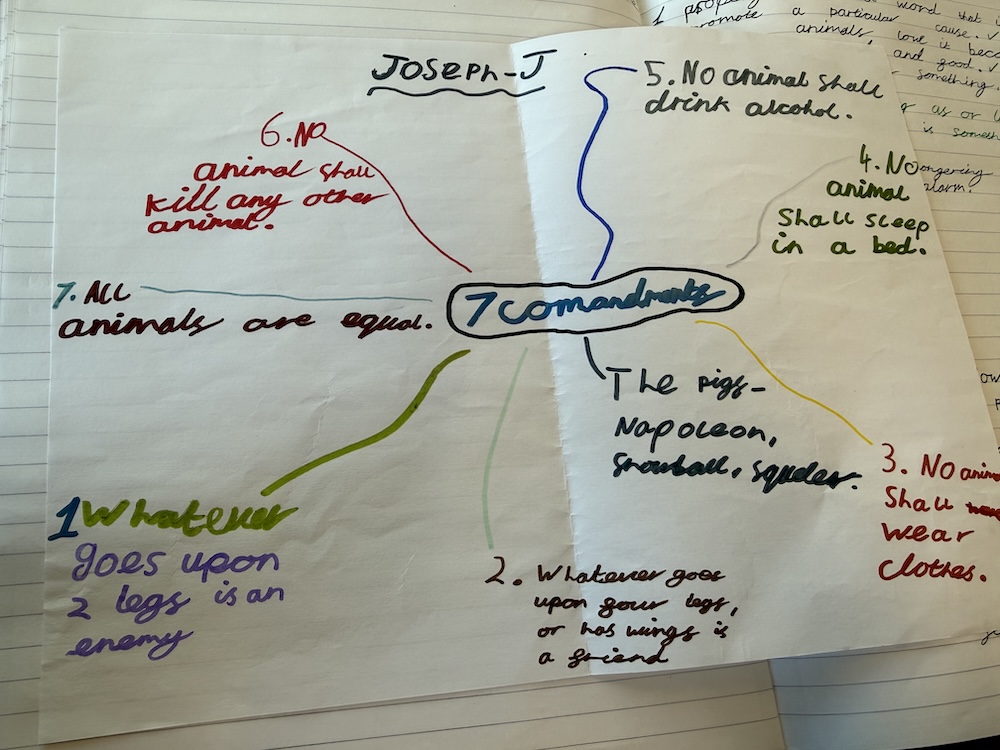 JOSEPH-J
5. No animal shall
drink alcohol.
6. No
animal shall
kill any other
animal.
4. No
animal
shall sleep
in a bed.
7. All
animals are equal.
7 comandments
The pigs-
Napoleon,
Snowball, squeler.
3. No
shall
wear
clothes.
1 Whatever
goes upon
2 legs is an
enemy
2. Whatever goes
upon four legs,
or has wings is
a friend
word that
promote a particular cause. ✓
animals, love it
and good. ✓
something.
as or
is